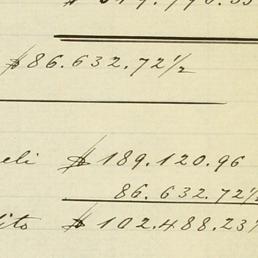 $86.632.72½
eli $189.120.96
86.632.72½
ito $102.488.23½